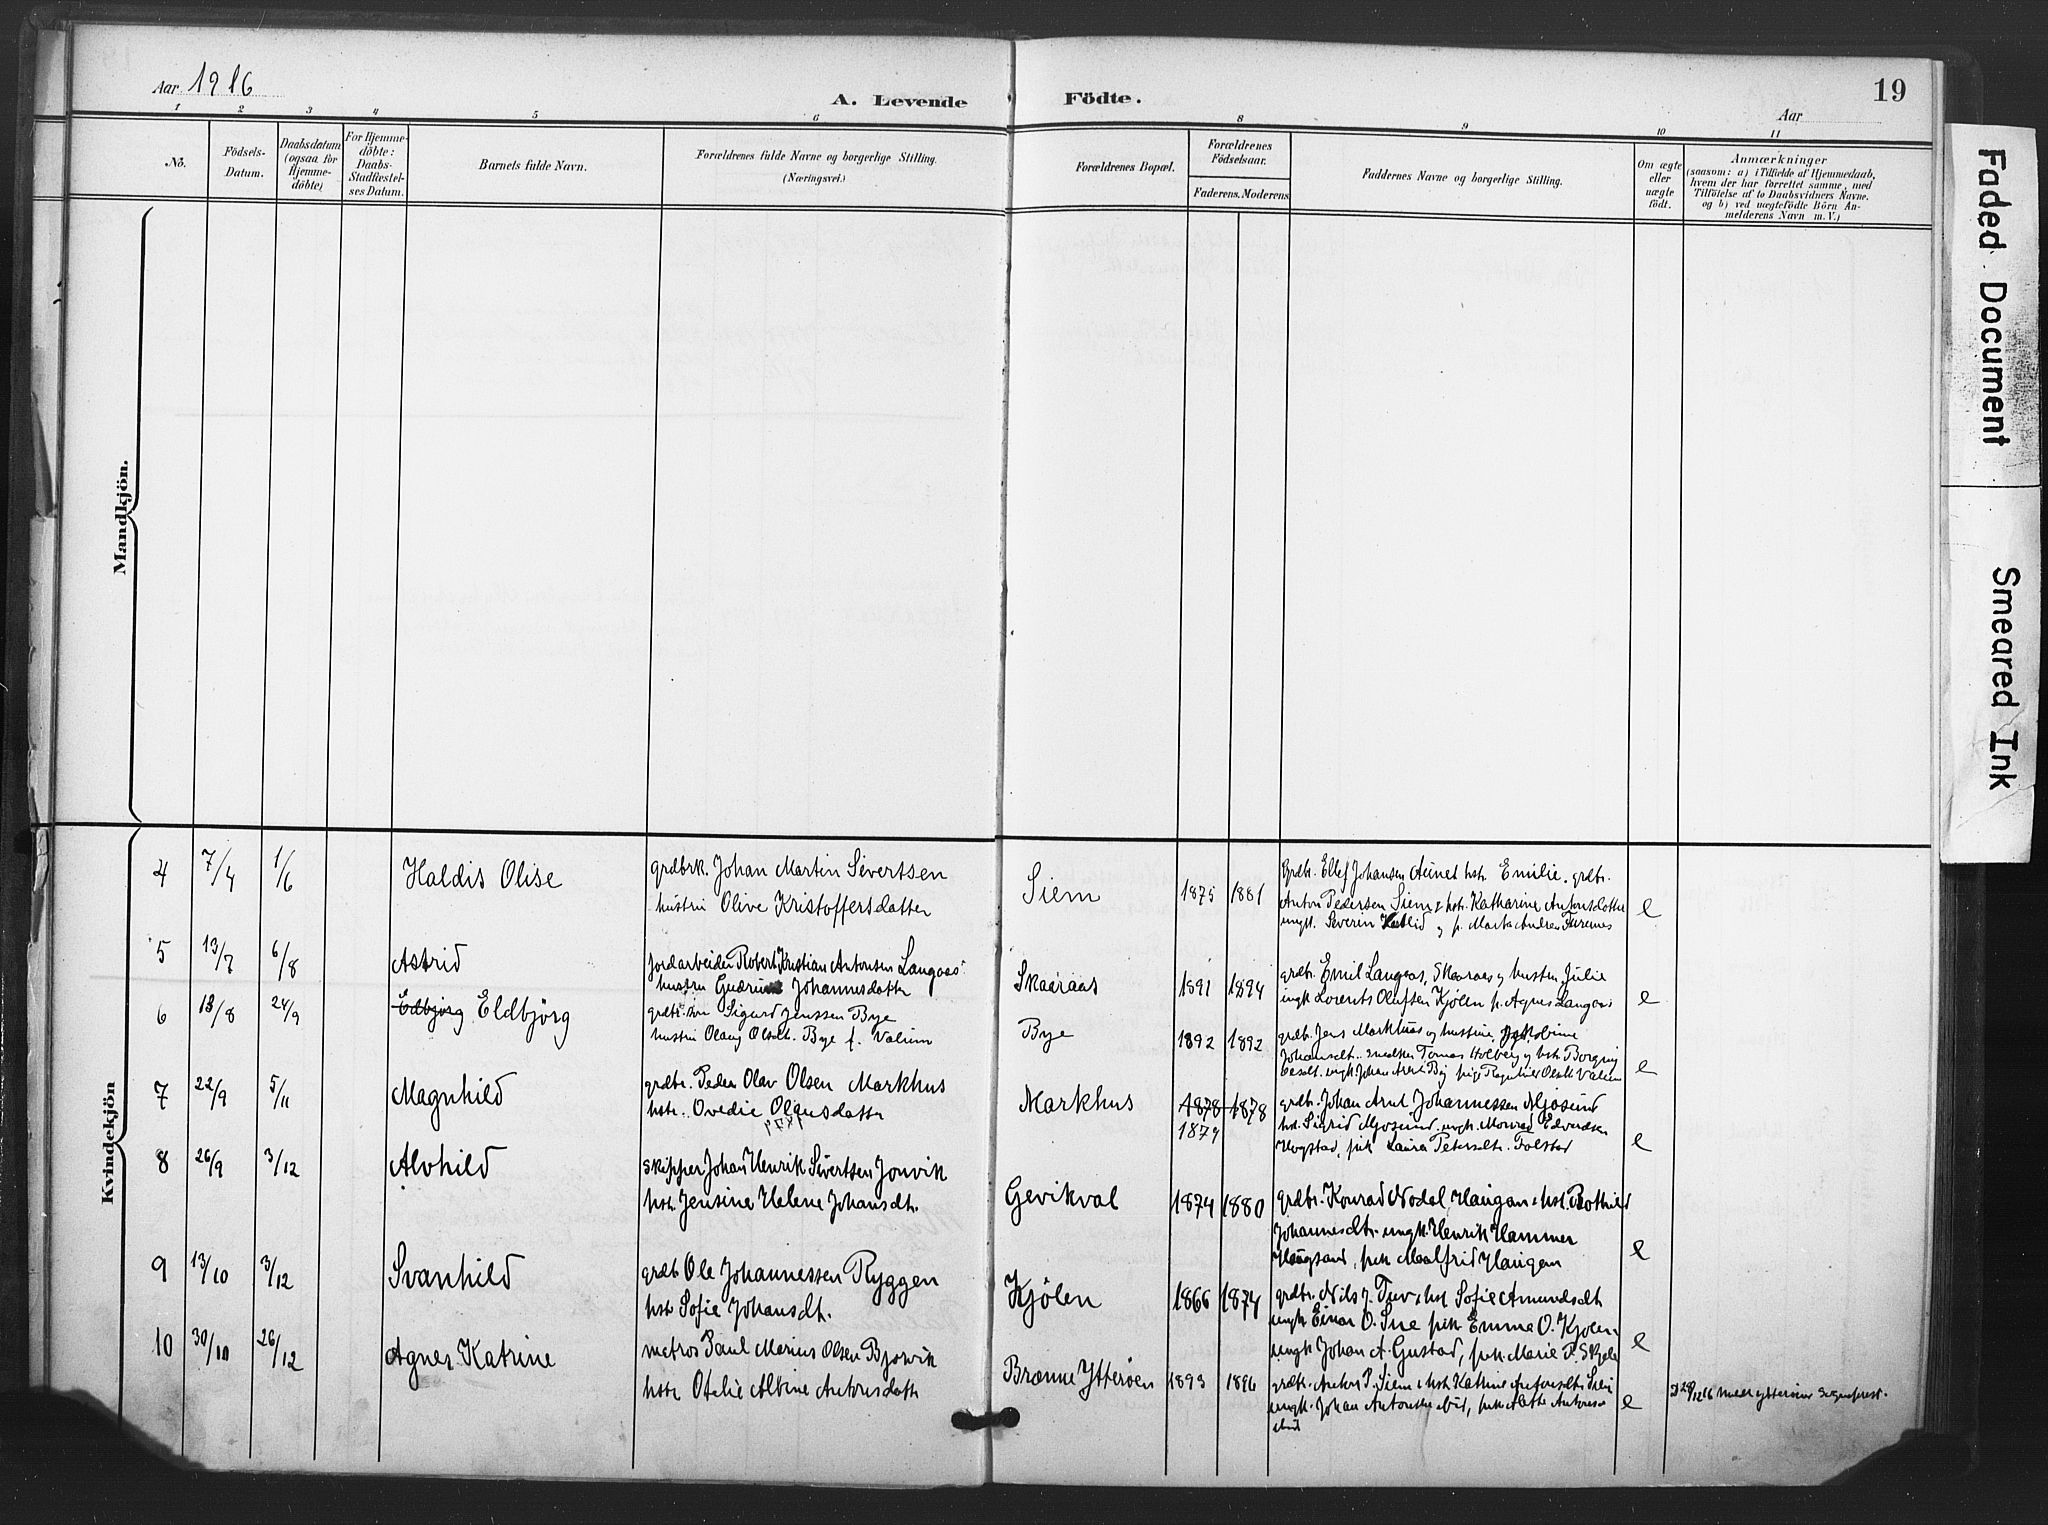 Aar 1916
A. Levende Födte.
19
Aar
1 2 3 4 5 6 8 9 10 11
No.
Födsels-
Datum.
Daabsdatum
(ogsaa for
Hjemme-
döbte)
For Hjemme-
döbte:
Daabs-
Stadfæstel-
ses Datum.
Barnets fulde Navn.
Forældrenes fulde Navne og borgerlige Stilling.
(Næringsvei.)
Forældrenes Bopæl.
Forældrenes
Födselsaar.
Faderens. Moderens
Faddernes Navne og borgerlige Stilling.
Om ægte
eller
uægte
födt.
Anmærkninger
(saasom: a) i Tilfælde af Hjemmedaab,
hvem der har forrettet samme, med
Tilföielse af to Daabsvidners Navne.
og b) ved uægtefödte Börn An-
melderens Navn m. V.)
Mandkjön.
Kvindekjön
4 7/4 1/6 Haldis Olise
grdbrk. Johan Martin Sivertsen
hustru Olive Kristoffersdatter
Siem 1875 1881
Grdbr. Ellef Johansen Aunet hstr. Emilie. grdbr.
Anton Pedersen Siem & hstr. Katharine Antonsdatter
ungk. Severin og p. Marta Andrea Furenes
e
5 13/7 6/8 Astrid
jordarbeider Robert Kristian Antonsen Langaas
hustru Gudrun Johannesdatter
Skaaraas 1891 1894
grdbr. Emil Langaas, Skaaraas og hustru Julie
ungk Lorents Olufsen Kjølen p. Agnes Langaas
e
6 13/8 24/9 Edbjørg Eldbjörg
grdbr. søn Sigurd Jenssen Bye
hustru Olaug Olsdt. Bye f. Valium
Bye 1892 1892
grdb. Jens Markhus og hustru Jakobine
Johansdt. Tomas Holberg og hstr Borgny
ungk Johan Arnt By pige Ragnhild Olsdt Valium
e
7 22/9 5/11 Magnhild
grdbr. Peder Olav Olsen Markhus
hstr. Ovedie Olausdatter
1879
Markhus 1878 1878
1879
grdbr. Johan Arnt Johannessen Mjøsund
hst. Sigrid Mjøsund. ungk. Monrad Edvardsen
Hogstad, pik Laura Petersdt. Folstad
e
8 26/9 3/12 Alvhild
Skipper Johan Henrik Sivertsen Jonvik
hstr. Jensine Helene Johansdtr.
Gevikval 1874 1880
grdbr. Konrad Nodal Haugan & hst. Bothild
Johannesdtr. ungk. Henrik Hammer
Haugsand, pik Maalfrid Haugan
e
9 13/10 3/12 Svanhild
grdb Ole Johannessen Ryggen
hstr Sofie Johansdt.
Kjölen 1866 1874
grdbr. Nils J. Tuv & hst Sofie Amundsdt
ungk Einar O. Sue pik Emma O. Kjølen
ungk Johan A. Gustad, pik Marie P.
e
10 30/10 26/12 Agnes Katrine
matros Paul Marius Olsen Bjørvik
hstr Otelie Albine Antonsdatter
Brænne Ytterøen 1893 1896
grdbr. Anton P. Siem & hst Katrine Antonsdtr Siem
ungk. Johan Antonsen pik Alette Antonsen
e
26/12 16 Ytterøens Sogneprest.
Faded Document
Smeared Ink